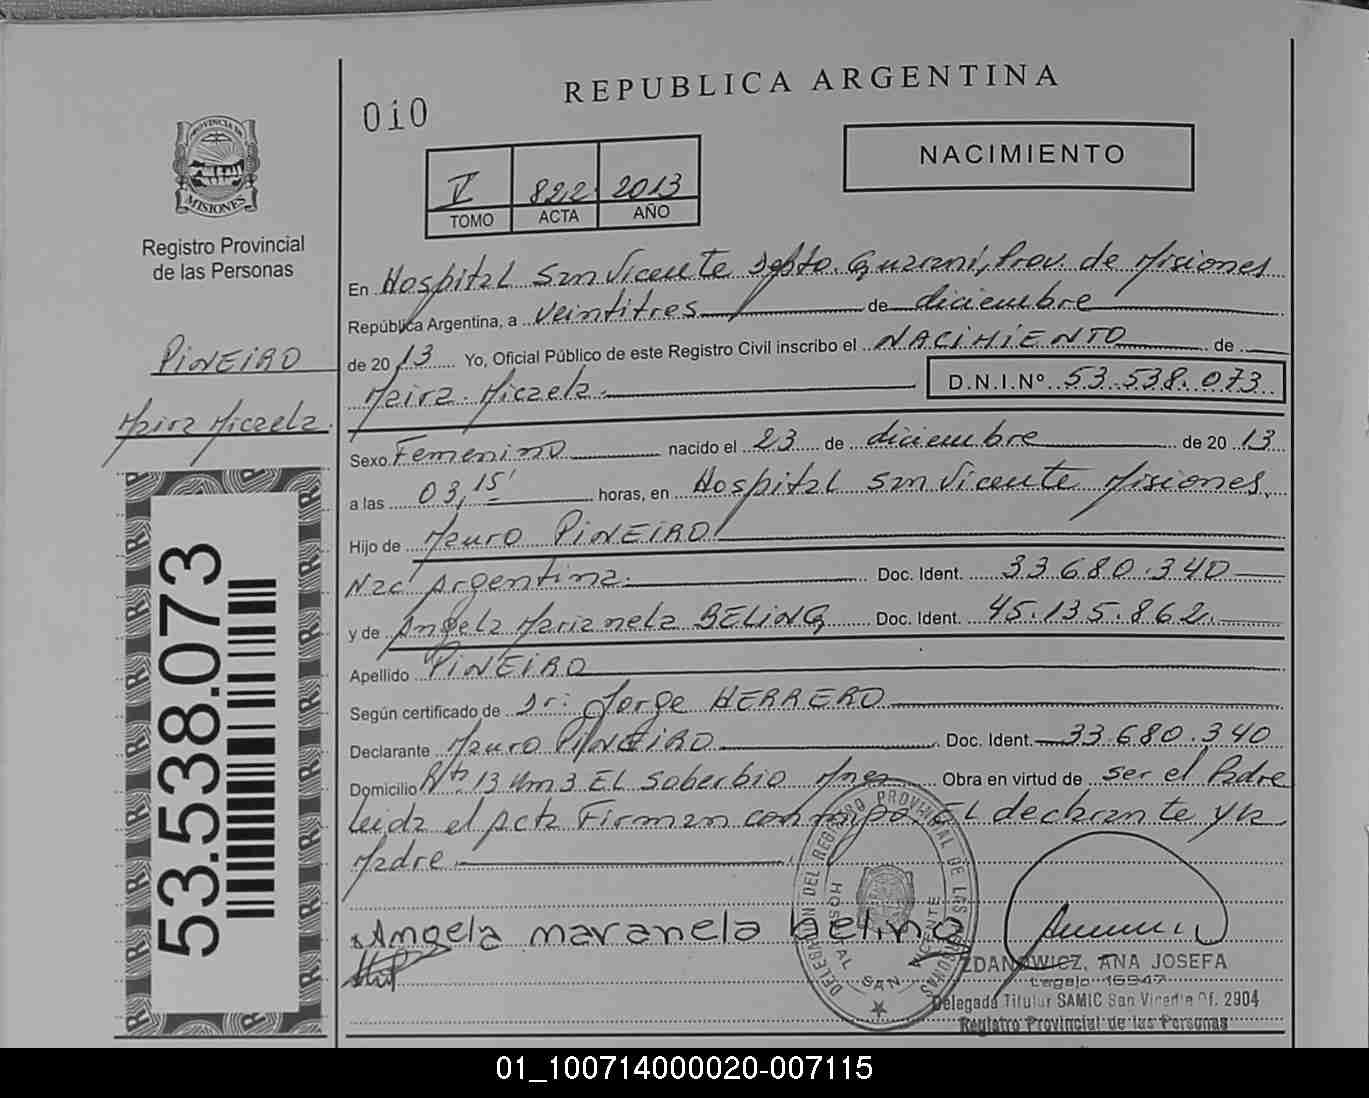 REPUBLICA ARGENTINA
010
NACIMIENTO
V 822 2013
TOMO ACTA AÑO
PROVINCIA DE
MISIONES
Registro Provincial
de las Personas
PINEIRO
Maira Micaela
53.538.073
En Hospital San Vicente Dpto. Guarani, Prov. de Misiones
República Argentina, a veintitres de diciembre
de 2013 Yo, Oficial Público de este Registro Civil inscribo el NACIMIENTO de
Maira Micaela D.N.I.Nº 53.538.073
Sexo Femenino nacido el 23 de diciembre de 2013
a las 03,15' horas, en Hospital San Vicente Misiones.
Hijo de Mauro PINEIRO
Nac Argentina. Doc. Ident. 33.680.340
y de Angela Marianela BELING Doc. Ident. 45.135.862
Apellido PINEIRO
Según certificado de Dr: Jorge HERRERO
Declarante Mauro PINEIRO Doc. Ident. 33.680.340
Domicilio Rta. 13 Km 3 EL Soberbio Mnes Obra en virtud de ser el Padre
leida el Acta Firman conmigo EL declarante y la
Madre.
Angela maranela beling
DELEGACION DEL REGISTRO PROVINCIAL DE LAS PERSONAS
HOSPITAL SAN VICENTE
ZDANOWICZ, ANA JOSEFA
Legajo 16947
Delegada Titular SAMIC San Vicente Of. 2904
Registro Provincial de las Personas
01_100714000020-007115